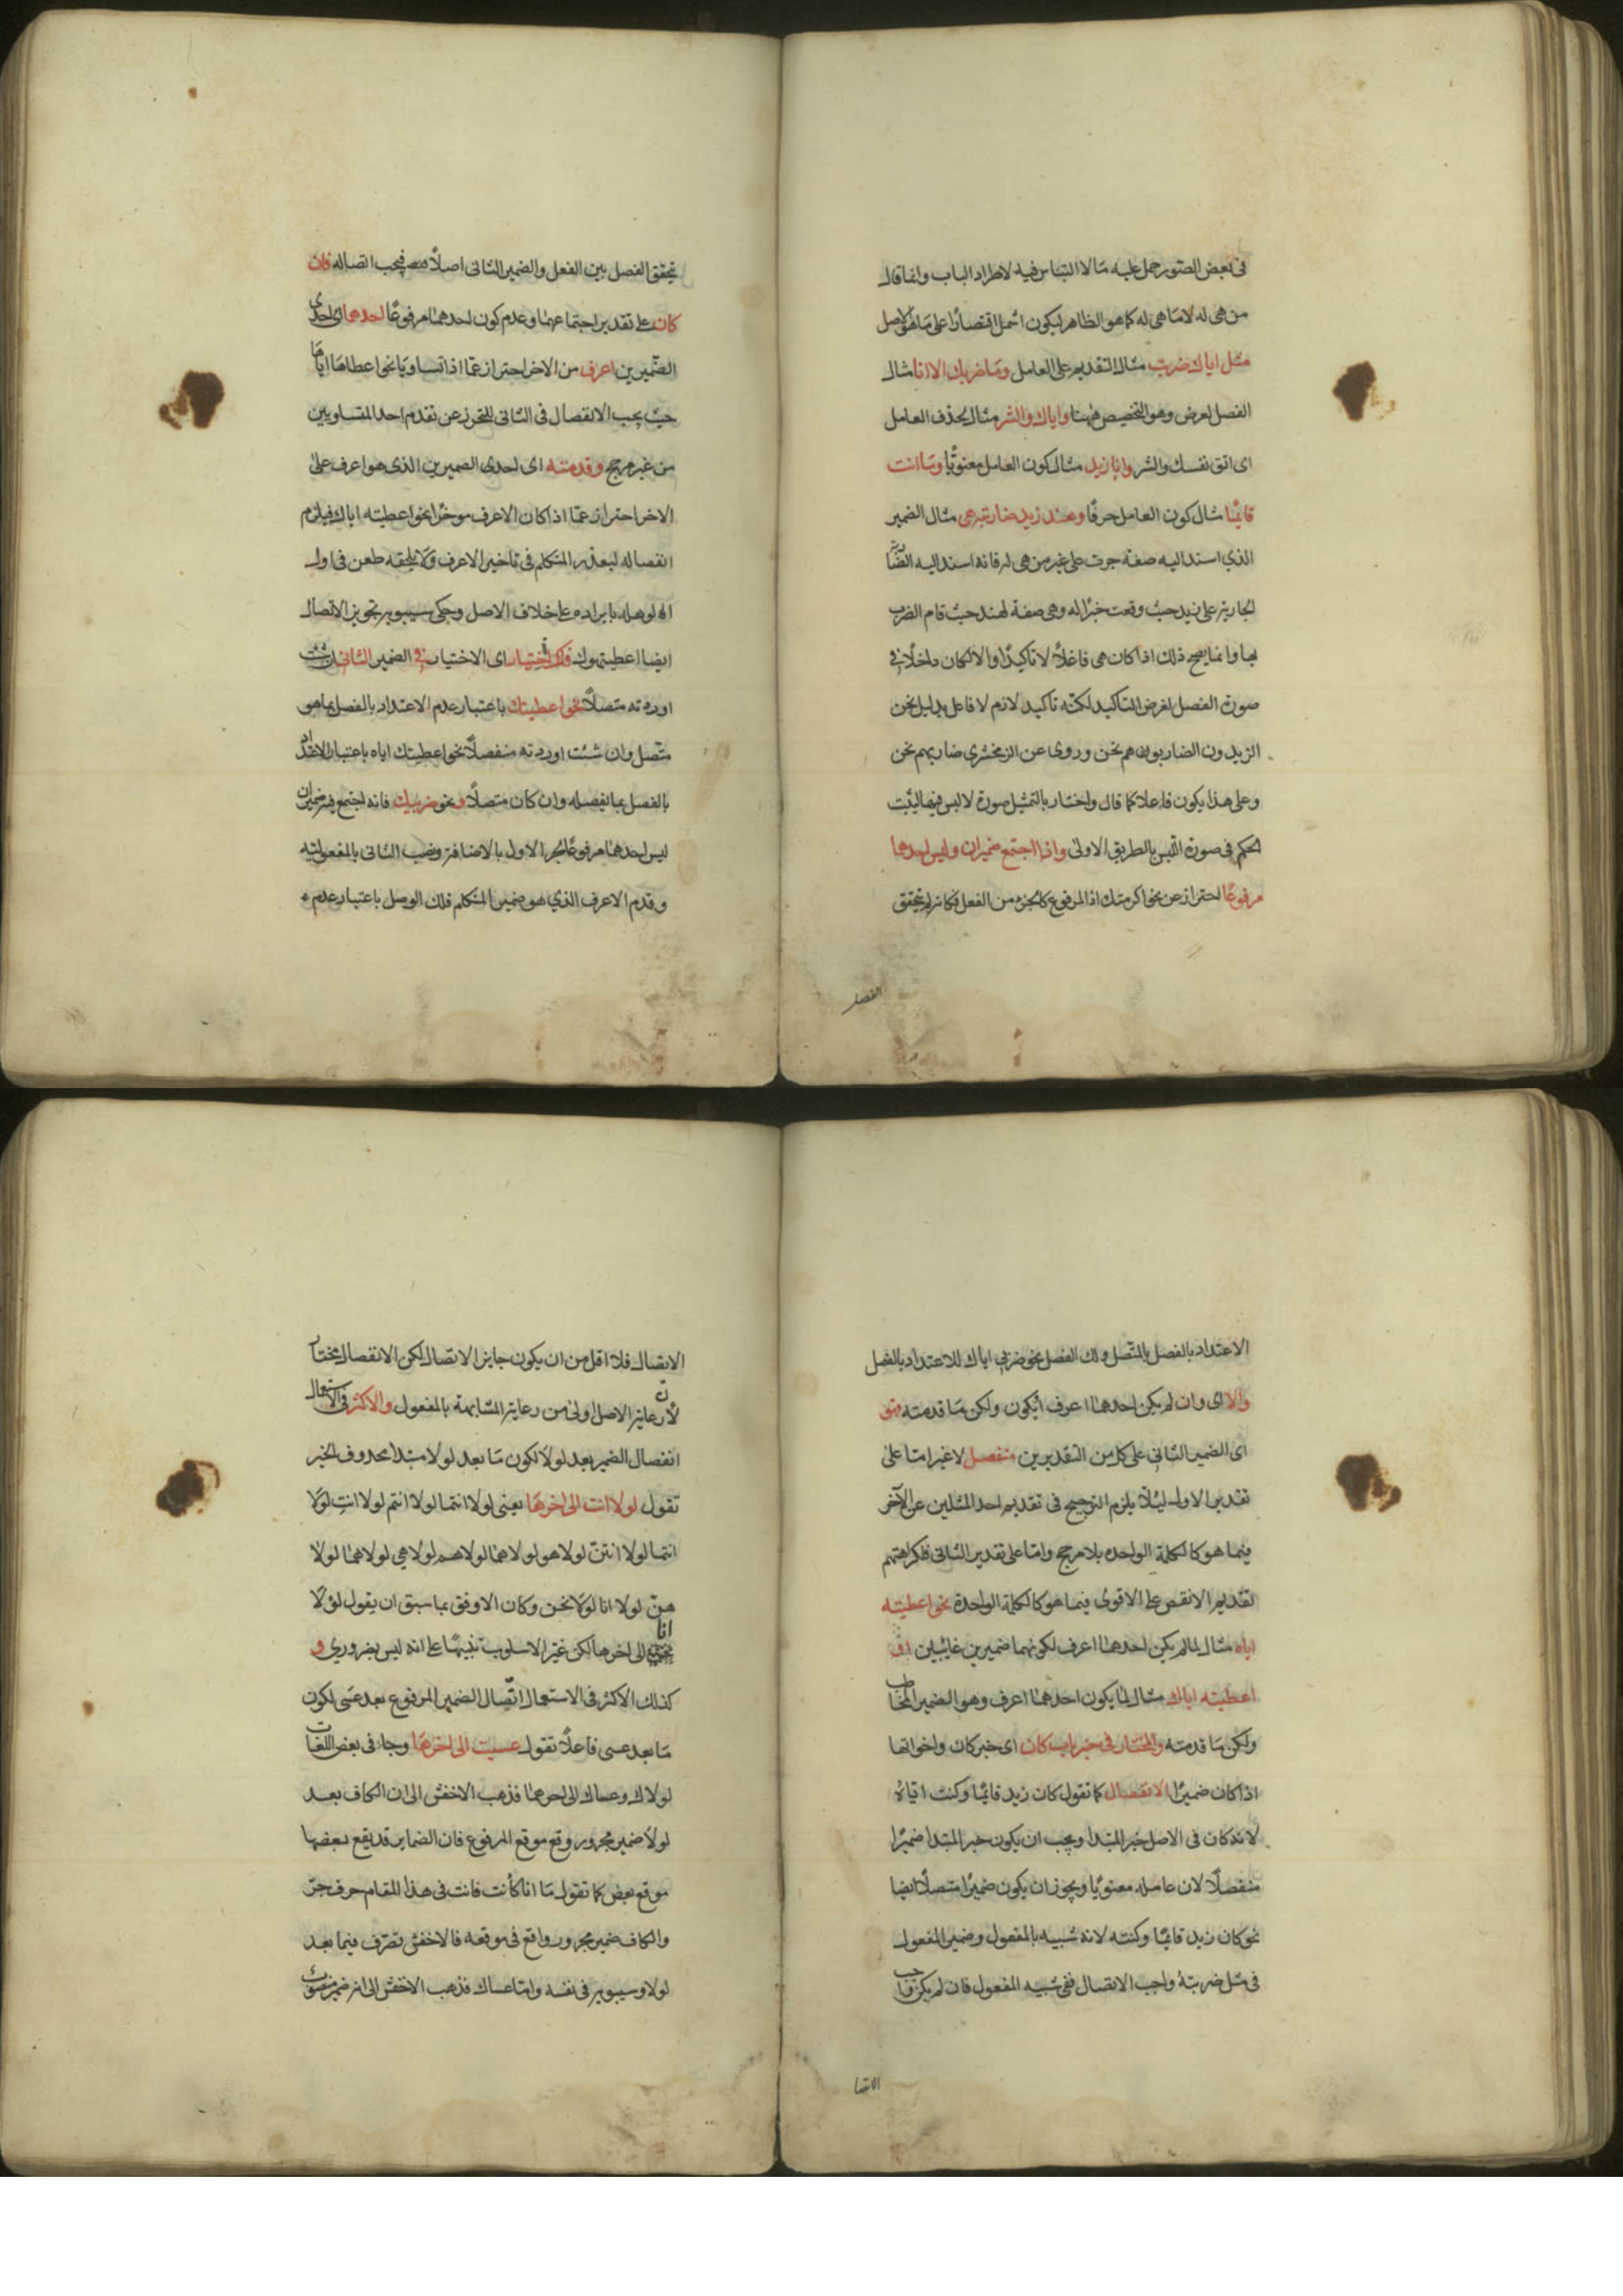 فى بعض الصور حمل عليه ما لا التباس فيه لاطراد الباب وانما قال
من هى له لا ما هى له كما هو الظاهر ليكون اشمل اقتصارا على ما هو الاصل
مثل اياك ضربت مثال التقديم على العامل وما ضربك الا انا مثال
الفصل لغرض وهو التخصيص ههنا واياك والشر مثال حذف العامل
اى اتق نفسك والشر وانا زيد مثال كون العامل معنويا وما انت
قائما مثال كون العامل حرفا وهند زيد ضاربته هى مثال الضمير
الذي اسند اليه صفة جرت على غير من هى له فانه اسند اليه الضاربة
الجارية على زيد حيث وقعت خبرا له وهى صفة لهند حيث قام الضرب
بها وانما يصح ذلك اذا كان هى فاعلا لا تأكيدا والا لكان داخلا فى
صورة الفصل لغرض التاكيد لكنه تاكيد لازم لا فاعل بدليل نحن
الزيدون الضاربوهم نحن وروى عن الزمخشرى ضاربهم نحن
وعلى هذا يكون فاعلا كما قال واختار بالتمثيل صورة لا لبس فيها ليثبت
الحكم فى صورة اللبس بالطريق الاولى واذا اجتمع ضميران وليس احدهما
مرفوعا احتراز عن نحو اكرمتك اذ المرفوع كالجزء من الفعل فكانه لم يتحقق
الفصل
يتحقق الفصل بين الفعل والضمير الثانى اصلا فيجب اتصاله فان
كان على تقدير اجتماعهما وعدم كون احدهما مرفوعا احدهما اى احدى
الضميرين اعرف من الاخر احتراز عما اذا تساويا نحو اعطاها اياها
حيث يجب الانفصال فى الثانى للتحرز عن تقدم احد المتساويين
من غير مرجح وقدمته اى احدى الضميرين الذى هو اعرف على
الاخر احتراز عما اذا كان الاعرف موخرا نحو اعطيته اياك فيلزم
انفصاله ليعذر المتكلم فى تاخير الاعرف ولا يلحقه طعن فى اول
الوهلة بايراده على خلاف الاصل وحكى سيبويه تجويز الاتصال
ايضا اعطيتهوك فلك الخيار اى الاختيار فى الضمير الثانى ان شئت
اوردته متصلا نحو اعطيتك باعتبار عدم الاعتداد بالفصل بما هو
متصل وان شئت اوردته منفصلا نحو اعطيتك اياه باعتبار الاعتداد
بالفصل بما يفصله وان كان متصلا ونحو ضربيك فانه اجتمع فيه ضميران
ليس احدهما مرفوعا لجر الاول بالاضافة ونصب الثانى بالمفعولية
وقدم الاعرف الذي هو ضمير المتكلم فلك الوصل باعتبار عدم
الاعتداد بالفصل بالمتصل ولك الفصل نحو ضربى اياك للاعتداد بالفصل
والا اى وان لم يكن احدهما اعرف او يكون ولكن ما قدمته فهو
اى الضمير الثانى على كل من التقديرين منفصل لا غير اما على
تقدير الاول لئلا يلزم الترجيح فى تقديم احد المثلين على الآخر
فيما هو كالكلمة الواحده بلا مرجح واما على تقدير الثانى فلكراهتهم
تقديم الانقص على الاقوى فيما هو كالكلمة الواحدة نحو اعطيته
اياه مثال لما لم يكن احدهما اعرف لكونهما ضميرين غايبين او
اعطيته اياك مثال لما يكون احدهما اعرف وهو الضمير المخاطب
ولكن ما قدمته والمختار فى خبر باب كان اى خبر كان واخواتها
اذا كان ضميرا الانفصال كما تقول كان زيد قائما وكنت اياه
لانه كان فى الاصل خبر المبتدا ويجب ان يكون خبر المبتدا ضميرا
منفصلا لان عامله معنويا ويجوز ان يكون ضميرا متصلا ايضا
نحو كان زيد قائما وكنته لانه شبيه بالمفعول وضمير المفعول
فى مثل ضربته واجب الاتصال ففى شبيه المفعول فان لم يكن واجب
الاتصا
الاتصال فلا اقل من ان يكون جايز الاتصال لكن الانفصال مختار
لان رعاية الاصل اولى من رعاية المشابهة بالمفعول والاكثر فى الاستعمال
انفصال الضمير بعد لولا لكون ما بعد لولا مبتدا محذوف الخبر
تقول لولا انت الى اخرها يعنى لولا انتما لولا انتم لولا انتِ لولا
انتما لولا انتن لولا هو لولا هما لولا هم لولا هي لولا هما لولا
هن لولا انا لولا نحن وكان الاوفق بما سبق ان يقول لولا
انا الى اخرها لكن غير الاسلوب تنبيها على انه ليس بضروري و
كذلك الاكثر فى الاستعمال اتصال الضمير المرفوع بعد عسى لكون
ما بعد عسى فاعلا تقول عسيت الى اخرها وجاء فى بعض اللغات
لولاك وعساك الى اخرهما فذهب الاخفش الى ان الكاف بعد
لولا ضمير مجرور وقع موقع المرفوع فان الضماير قد يقع بعضها
موقع بعض كما تقول ما انا كأنت فانت فى هذا المقام حرف جر
والكاف ضمير مجرور واقع فى موقعه فالاخفش تصرف فيما بعد
لولا وسيبويه فى نفسه واما عساك فذهب الاخفش الى انه ضمير منصوب